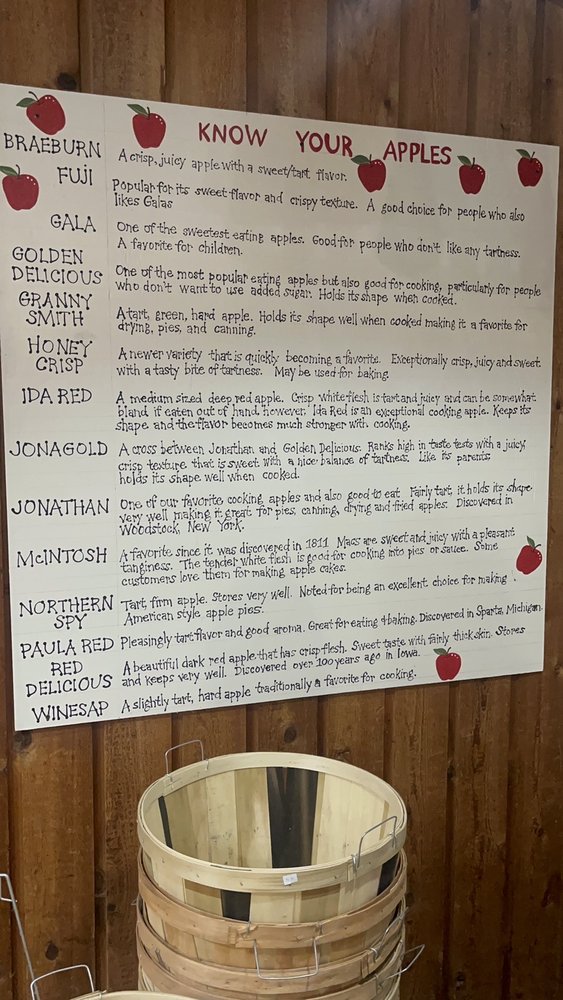 KNOW YOUR APPLES
BRAEBURN
A crisp, juicy apple with a sweet/tart flavor.
FUJI
Popular for its sweet flavor and crispy texture. A good choice for people who also
likes Galas
GALA
One of the sweetest eating apples. Good for people who don't like any tartness.
A favorite for children.
GOLDEN
DELICIOUS
One of the most popular eating apples but also good for cooking, particularly for people
who don't want to use added sugar. Holds its shape when cooked.
GRANNY
SMITH
A tart, green, hard apple. Holds its shape well when cooked making it a favorite for
drying, pies, and canning.
HONEY
CRISP
A newer variety that is quickly becoming a favorite. Exceptionally crisp, juicy and sweet
with a tasty bite of tartness. May be used for baking.
IDA RED
A medium sized deep red apple. Crisp white flesh is tart and juicy and can be somewhat
bland if eaten out of hand, however, Ida Red is an exceptional cooking apple. Keeps its
shape and the flavor becomes much stronger with cooking.
JONAGOLD
A cross between Jonathan and Golden Delicious. Ranks high in taste tests with a juicy,
crisp texture that is sweet with a nice balance of tartness. Like its parents
holds its shape well when cooked.
JONATHAN
One of our favorite cooking apples and also good to eat. Fairly tart, it holds its shape
very well making it great for pies, canning, drying and fried apples. Discovered in
Woodstock, New York.
McINTOSH
A favorite since it was discovered in 1811. Macs are sweet and juicy with a pleasant
tanginess. The tender white flesh is good for cooking into pies or sauce. Some
customers love them for making apple cakes.
NORTHERN
SPY
Tart, firm apple. Stores very well. Noted for being an excellent choice for making
American style apple pies.
PAULA RED
Pleasingly tart flavor and good aroma. Great for eating & baking. Discovered in Sparta, Michigan.
RED
DELICIOUS
A beautiful dark red apple that has crisp flesh. Sweet taste with fairly thick skin. Stores
and keeps very well. Discovered over 100 years ago in Iowa.
WINESAP
A slightly tart, hard apple traditionally a favorite for cooking.